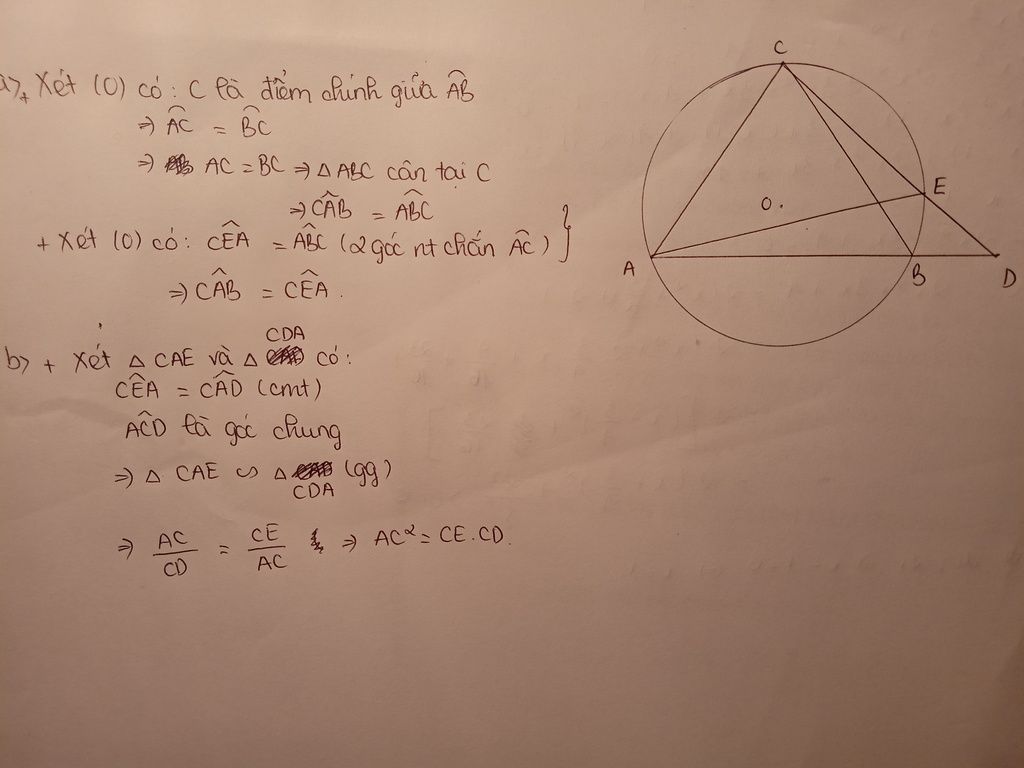 a) + Xét (O) có: C là điểm chính giữa AB̂
⇒ AĈ = BĈ
⇒ AC = BC ⇒ △ABC cân tại C
⇒ CÂB = AB̂C
+ Xét (O) có: CÊA = AB̂C (2 góc nt chắn AĈ) }
⇒ CÂB = CÊA.
b) + Xét △ CAE và △ CDA có:
CÊA = CÂD (cmt)
AĈD là góc chung
⇒ △ CAE ∽ △ CDA (gg)
⇒ AC/CD = CE/AC ⇒ AC² = CE.CD.
C
E
O.
A
B
D